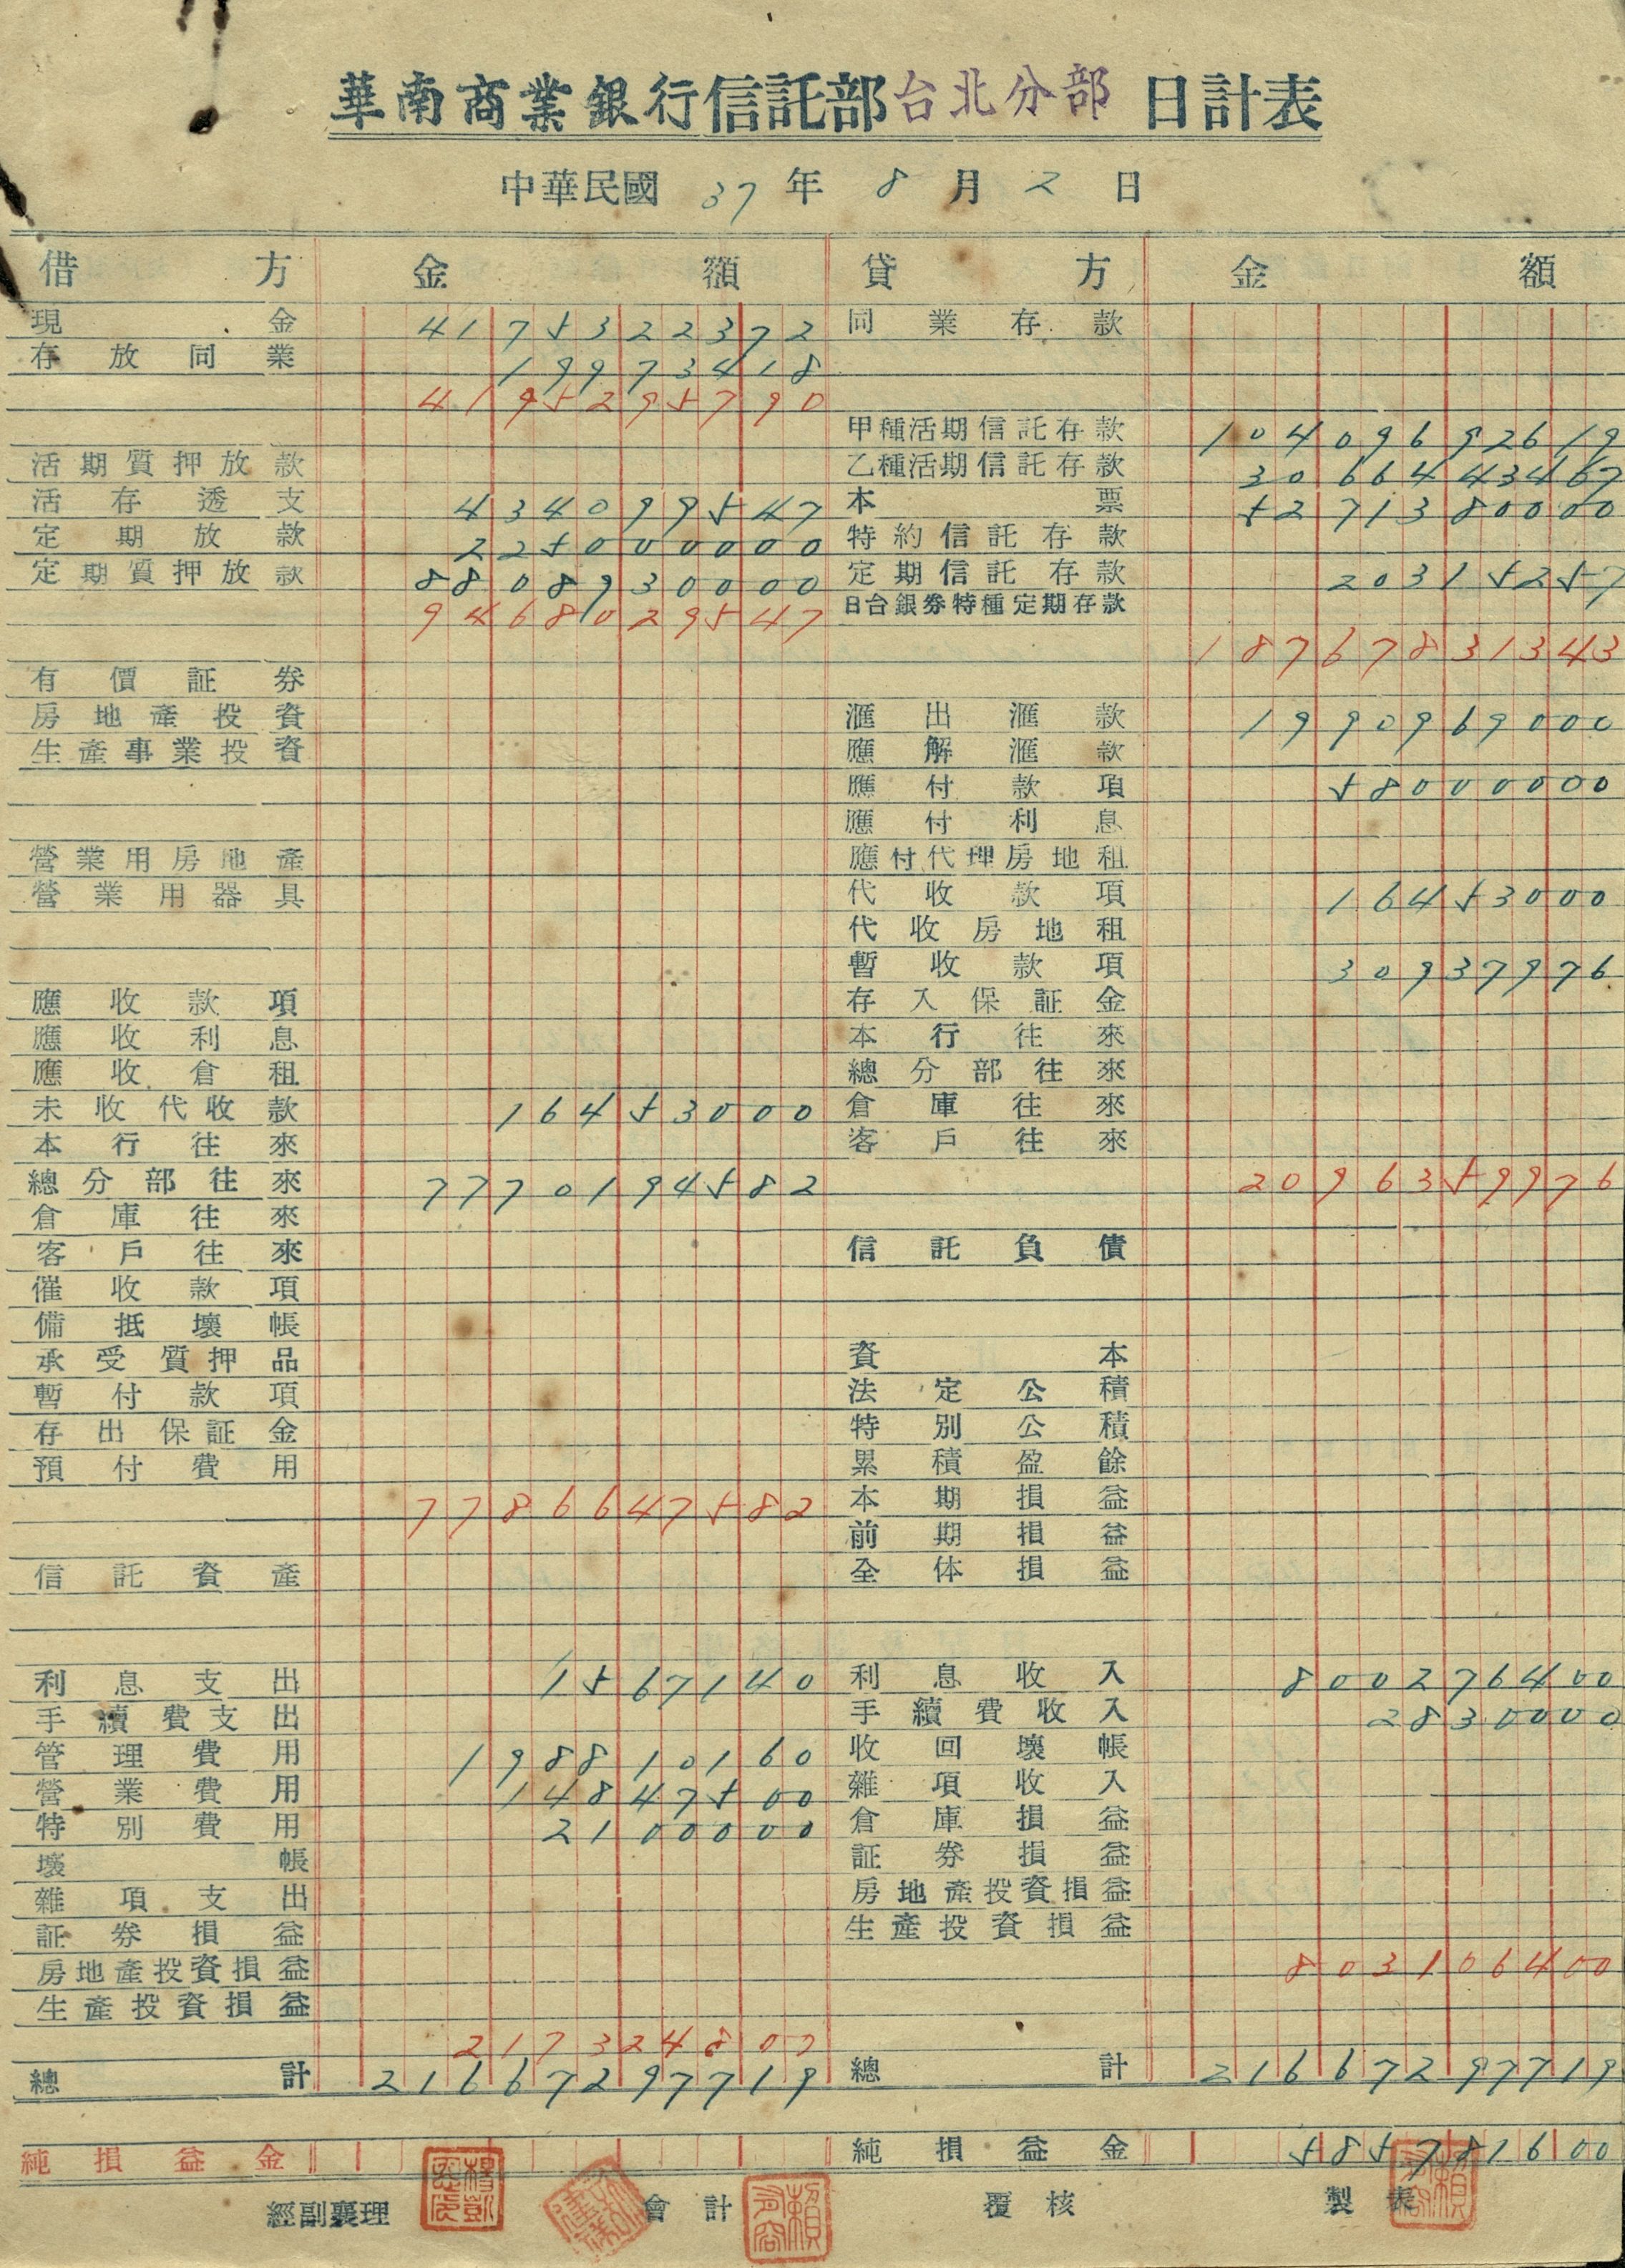 華南商業銀行信託部台北分部 日計表
中華民國 37 年 8 月 2 日
借方 金額 貸方 金額
現金 4175322372 同業存款
存放同業 19973418
4195295790
甲種活期信託存款 10409692619
活期質押放款 乙種活期信託存款 3066443467
活存透支 434099547 本票 5271380000
定期放款 225000000 特約信託存款
定期質押放款 8808930000 定期信託存款 20315257
9468029547 日台銀券特種定期存款
18767831343
有價証券
房地產投資 滙出滙款 1990969000
生產事業投資 應解滙款
應付款項 58000000
應付利息
營業用房地產 應付代理房地租
營業用器具 代收款項 16453000
代收房地租
暫收款項 30937976
應收款項 存入保証金
應收利息 本行往來
應收倉租 總分部往來
未收代收款 16453000 倉庫往來
本行往來 客戶往來
總分部往來 7770194582 2096359976
倉庫往來
客戶往來 信託負債
催收款項
備抵壞帳
承受質押品 資本
暫付款項 法定公積
存出保証金 特別公積
預付費用 累積盈餘
7786647582 本期損益
前期損益
信託資產 全体損益
利息支出 1567140 利息收入 800276400
手續費支出 手續費收入 2830000
管理費用 198810160 收回壞帳
營業費用 14847500 雜項收入
特別費用 2100000 倉庫損益
壞帳 証券損益
雜項支出 房地產投資損益
証券損益 生產投資損益
房地產投資損益 803106400
生產投資損益
217324800
總計 21667297719 總計 21667297719
純損益金 純損益金 585781600
經副襄理 會計 覆核 製表